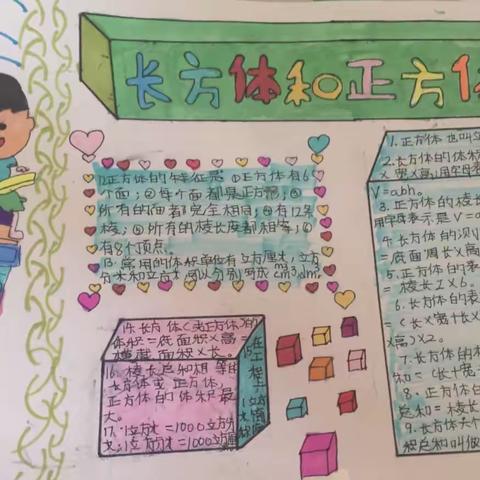 长方体和正方体
12正方体的特征是①正方体有6
个面;②每个面都是正方形;③
所有的面都完全相同;④有12条
棱;⑤所有的棱长度都相等;⑥
有8个顶点。
13.常用的体积单位有立方厘米,立方
分米和立方米可以分别写成cm³,dm³
m³
14.长方体(或正方体)的
体积=底面积×高=
横截面积×长。
16.棱长总和相等的
长方体或正方体,
正方体的体积最
大。
17.1立方米=1000立方分
米;1立方分米=1000立方厘
15.在工程上
1立方
1.正方体也叫立
2.长方体的体积
×宽×高;用字母表
V=abh。
3.正方体的棱长
用字母表示是V=a
4.长方体的
=底面周长×高
5.正方体的表
=棱长²×6。
6.长方体的表
=(长×宽+长×
×高)×2。
7.长方体的棱
和=(长+宽+
8.正方体的
总和=棱长
9.长方体六个
积总和叫做